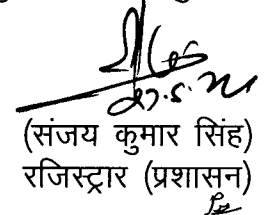 (संजय कुमार सिंह)
रजिस्ट्रार (प्रशासन)